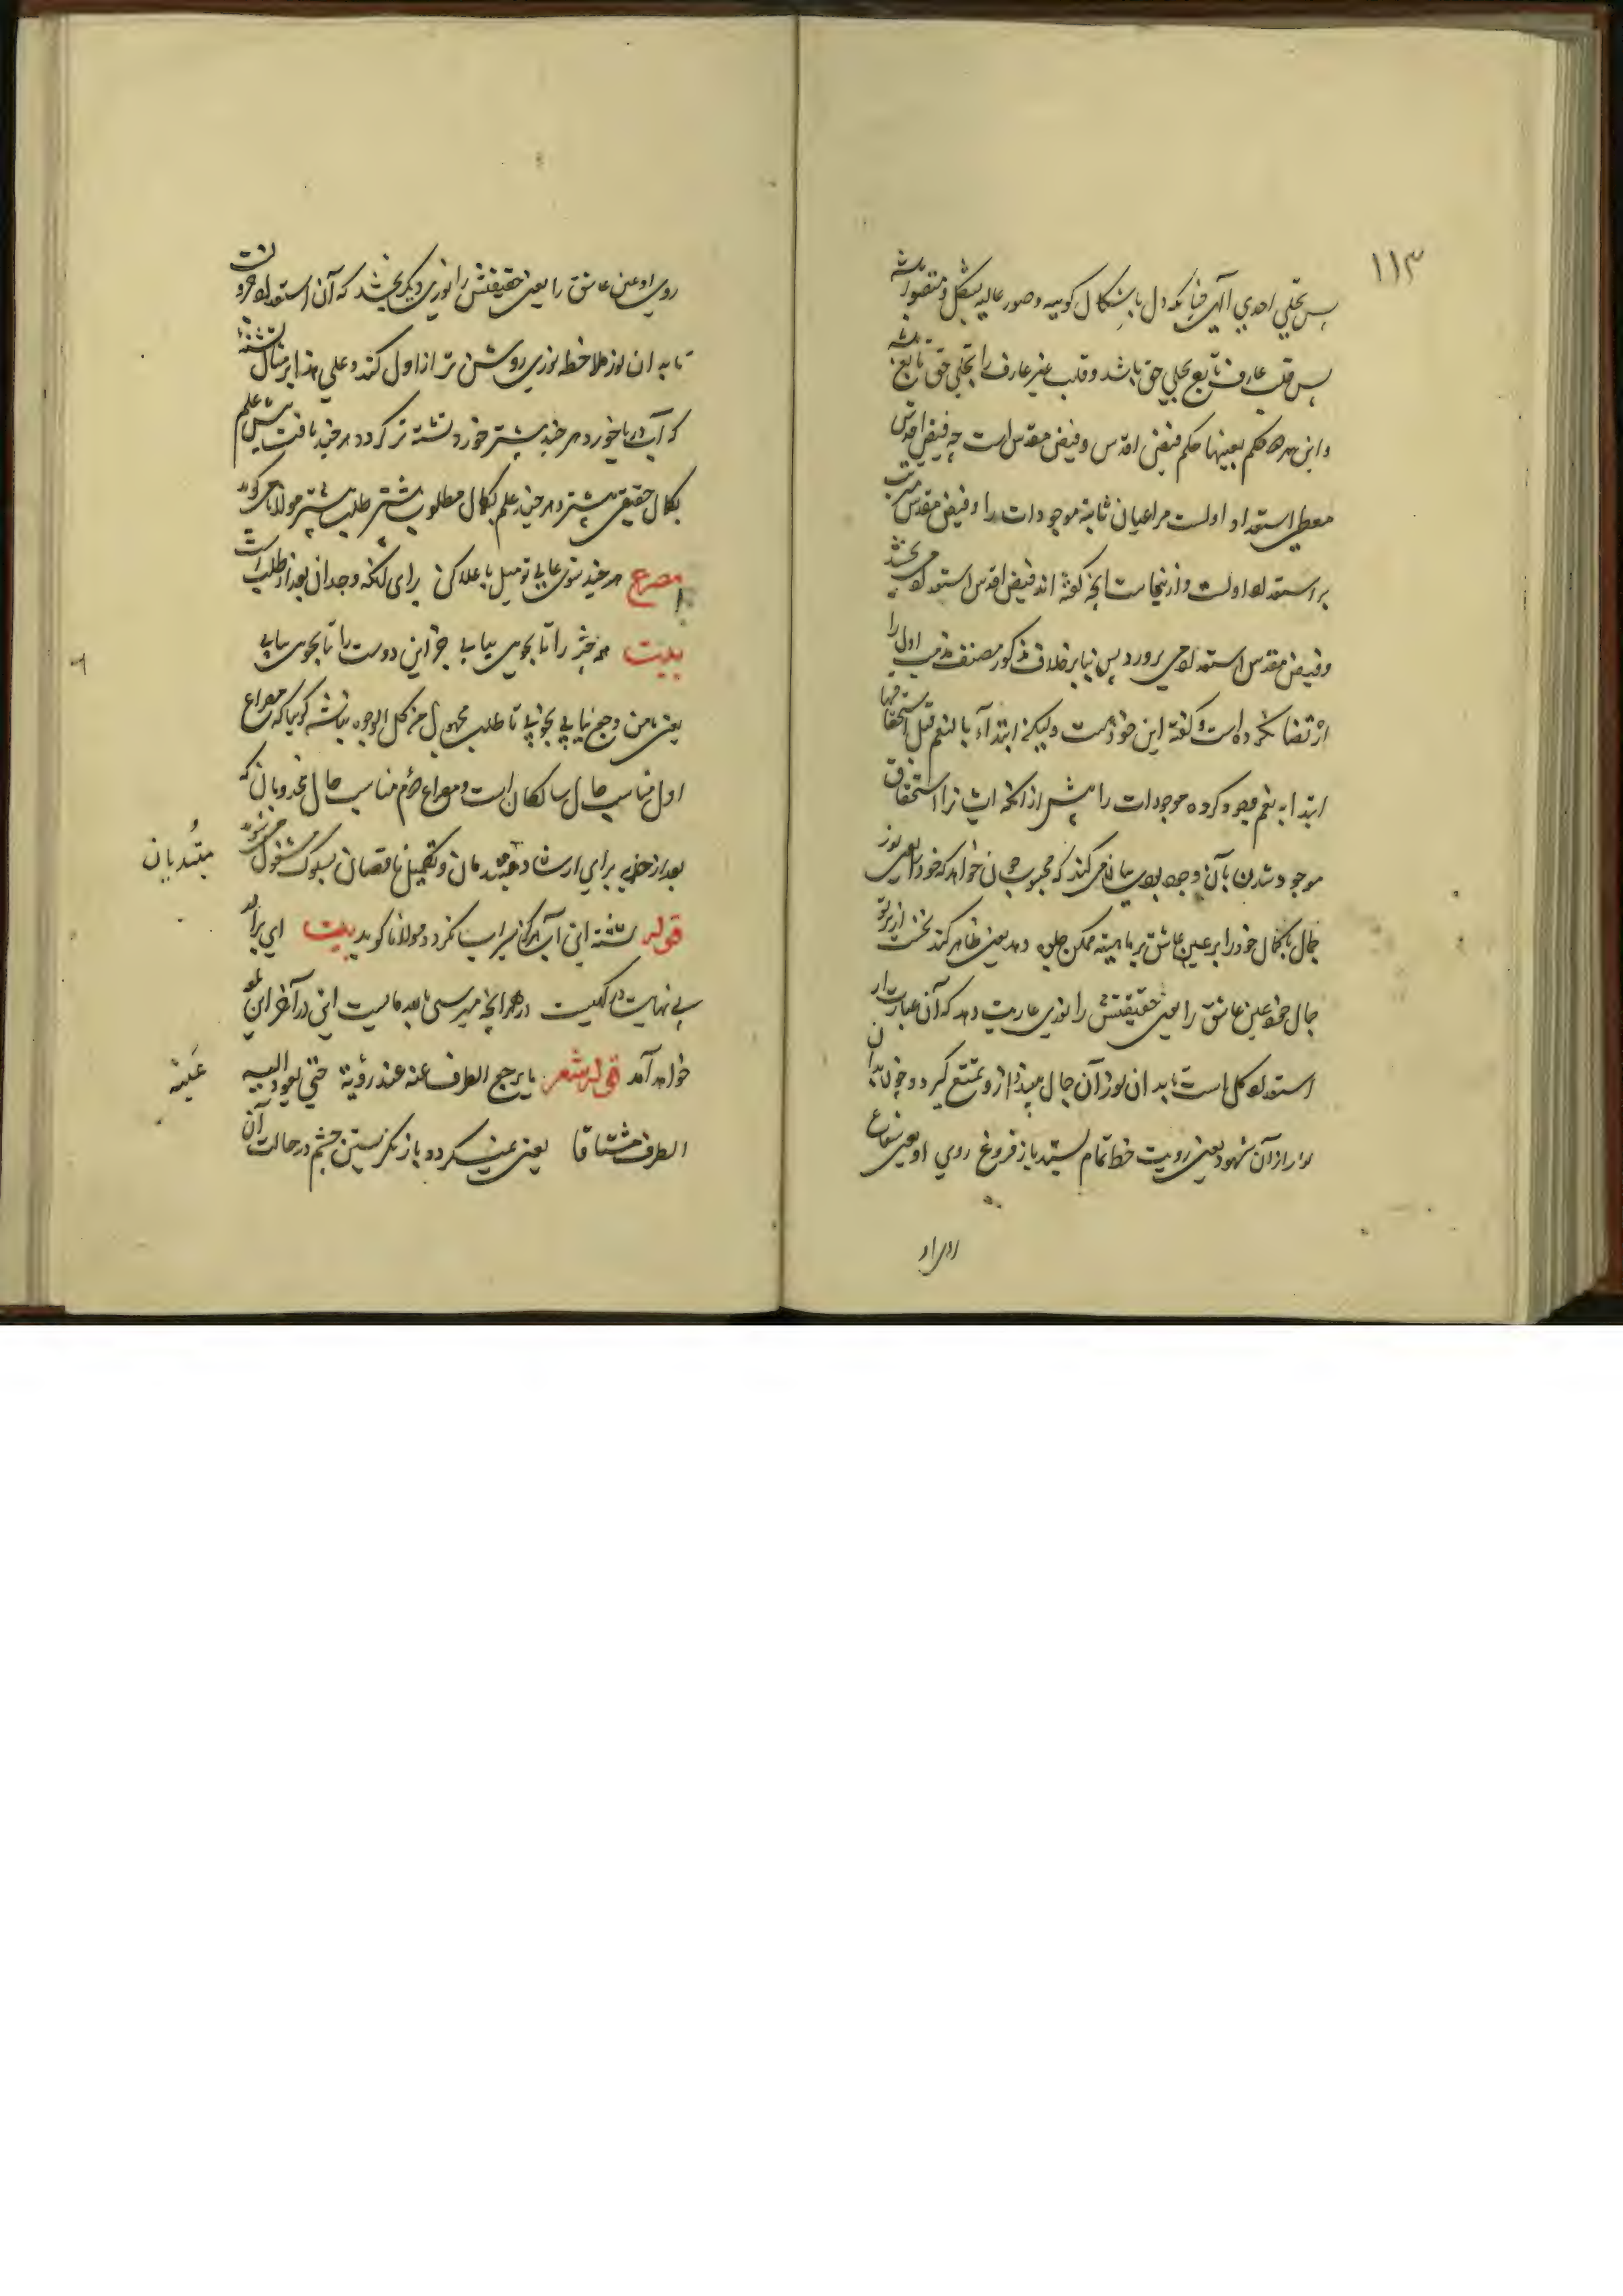 ۱۱۳
پس تجلی احدی الهی چنانکه دل باشکال کونیه وصور عالیه بشکل و متصور باشد
پس قلب عارف تابع تجلی حق باشد وقلب غیر عارف را تجلی حق تابع باشد
واین هر دو حکم بعینها حکم فیض اقدس وفیض مقدس است چه فیض اقدس
معطی استعداد اولست مر اعیان ثابته موجودات را وفیض مقدس مرتب
بر استعداد اولست وازینجاست آنچه گفته اند فیض اقدس استعداد می بخشد
وفیض مقدس استعداد می پرورد پس بنابر خلاف مذکور مصنف مذهب اول را
ارتضا نکرده است وگفته این خود هست ولیکن ابتدآء بالنعم قبل استحقاقها
ابتدا به نعم وجود کرده موجودات را پیش از آنکه ایشانرا استحقاق
موجود شدن بآن وجود بود می کند که محبوب چون خواهد که خود را یعنی نور
جمال با کمال خود را بر عین عاشق بر ماهیته ممکن جلوه دهد یعنی ظاهر کند نخست از پرتو
جمال خود عین عاشق را یعنی حقیقتش را نوری عاریت دهد که آن عبارت از
استعداد کل است تا بدان نور آن جمال بیند و ازو تمتع گیرد و چون بدان
نور از آن شهود یعنی رویت حظ تمام بستد باز فروغ روی او یعنی شعاع
روی او
روی او عین عاشق را یعنی حقیقتش را نوری دیگر بخشد که آن استعداد جزویست
تا به ان نور ملاحظه نوری روشن تر از اول کند و علی هذا بر مثال تشنه
که آب دریا خورد هر چند بیشتر خورد تشنه تر گردد هر چند یافت بیش علم
بکمال حقیقی بیشتر و هر چند علم بکمال مطلوب بیشتر طلب بیشتر مولانا می گوید
مصرع هر چند شوی عالی تو میل باعلا کن برای آنکه وجدان بعد از طلب است
بیت هر چیز را تا نجوی نیابی جز این دوست را تا نیابی نجوی
یعنی تا من وجه نیابی نجویی تا طلب مجهول من کل الوجوه نباشد گویا که مصراع
اول مناسب حال سالکان است ومصراع دوم مناسب حال مجذوبان که
بعد از جذبه برای ارشاد مبتدیان وتکمیل ناقصان بسلوک مشغول می شوند
مبتدیان
قوله تشنه این آب هرگز سیراب نگردد مولانا گوید بیت ای برادر
بی نهایت درگهیست در هر آنچه میرسی بالله مایست این در آخر این لمعه
خواهد آمد قوله شعر ما یرجع الطرف عنه عند رؤیته حتی یعود الیه
عینه
الطرف مشتاقا یعنی نمیگردد باز نگریستن چشم در حالت آن